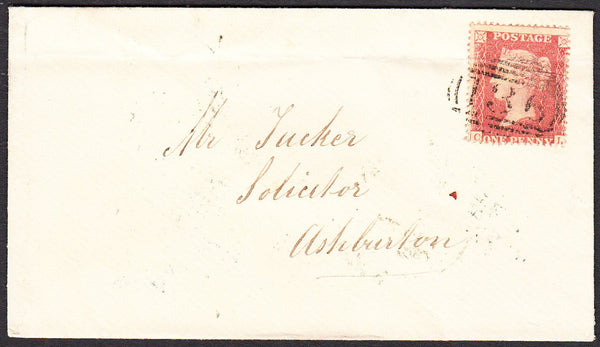 POSTAGE
ONE PENNY
Mr Tucker
Solicitor
Ashburton